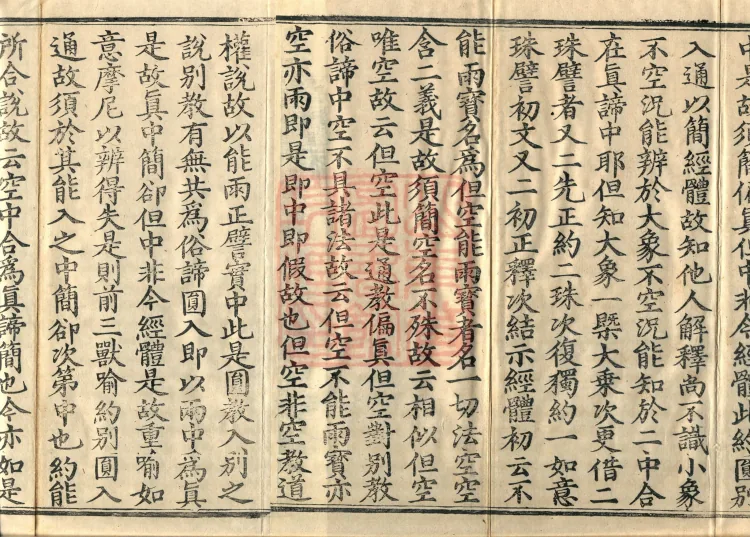 中是故須簡但真但中非今經體此約圓別
入通以簡經體故知他人解釋尚不識小象
不空況能辨於大象不空況能知於二中合
在眞諦中耶但知大象一槩大乗次更借二
珠譬者又二先正約二珠次復獨約一如意
珠譬初文又二初正釋次結示經體初云不
能雨寳名爲但空能雨寳者名一切法空空
含二義是故須簡空名不殊故云相似但空
唯空故云但空此是通教偏眞但空對別教
俗諦中空不具諸法故云但空不能雨寳亦
空亦雨即是即中即假故也但空非空教道
權說故以能雨正譬實中此是圓教入別之
說別教有無共爲俗諦圓入即以雨中爲眞
是故眞中簡卻但中非今經體是故重喻如
意摩尼以辨得失是則前三獸喻約別圓入
通故須於其能入之中簡卻次第中也約能
所合說故云空中合爲眞諦簡也今亦如是